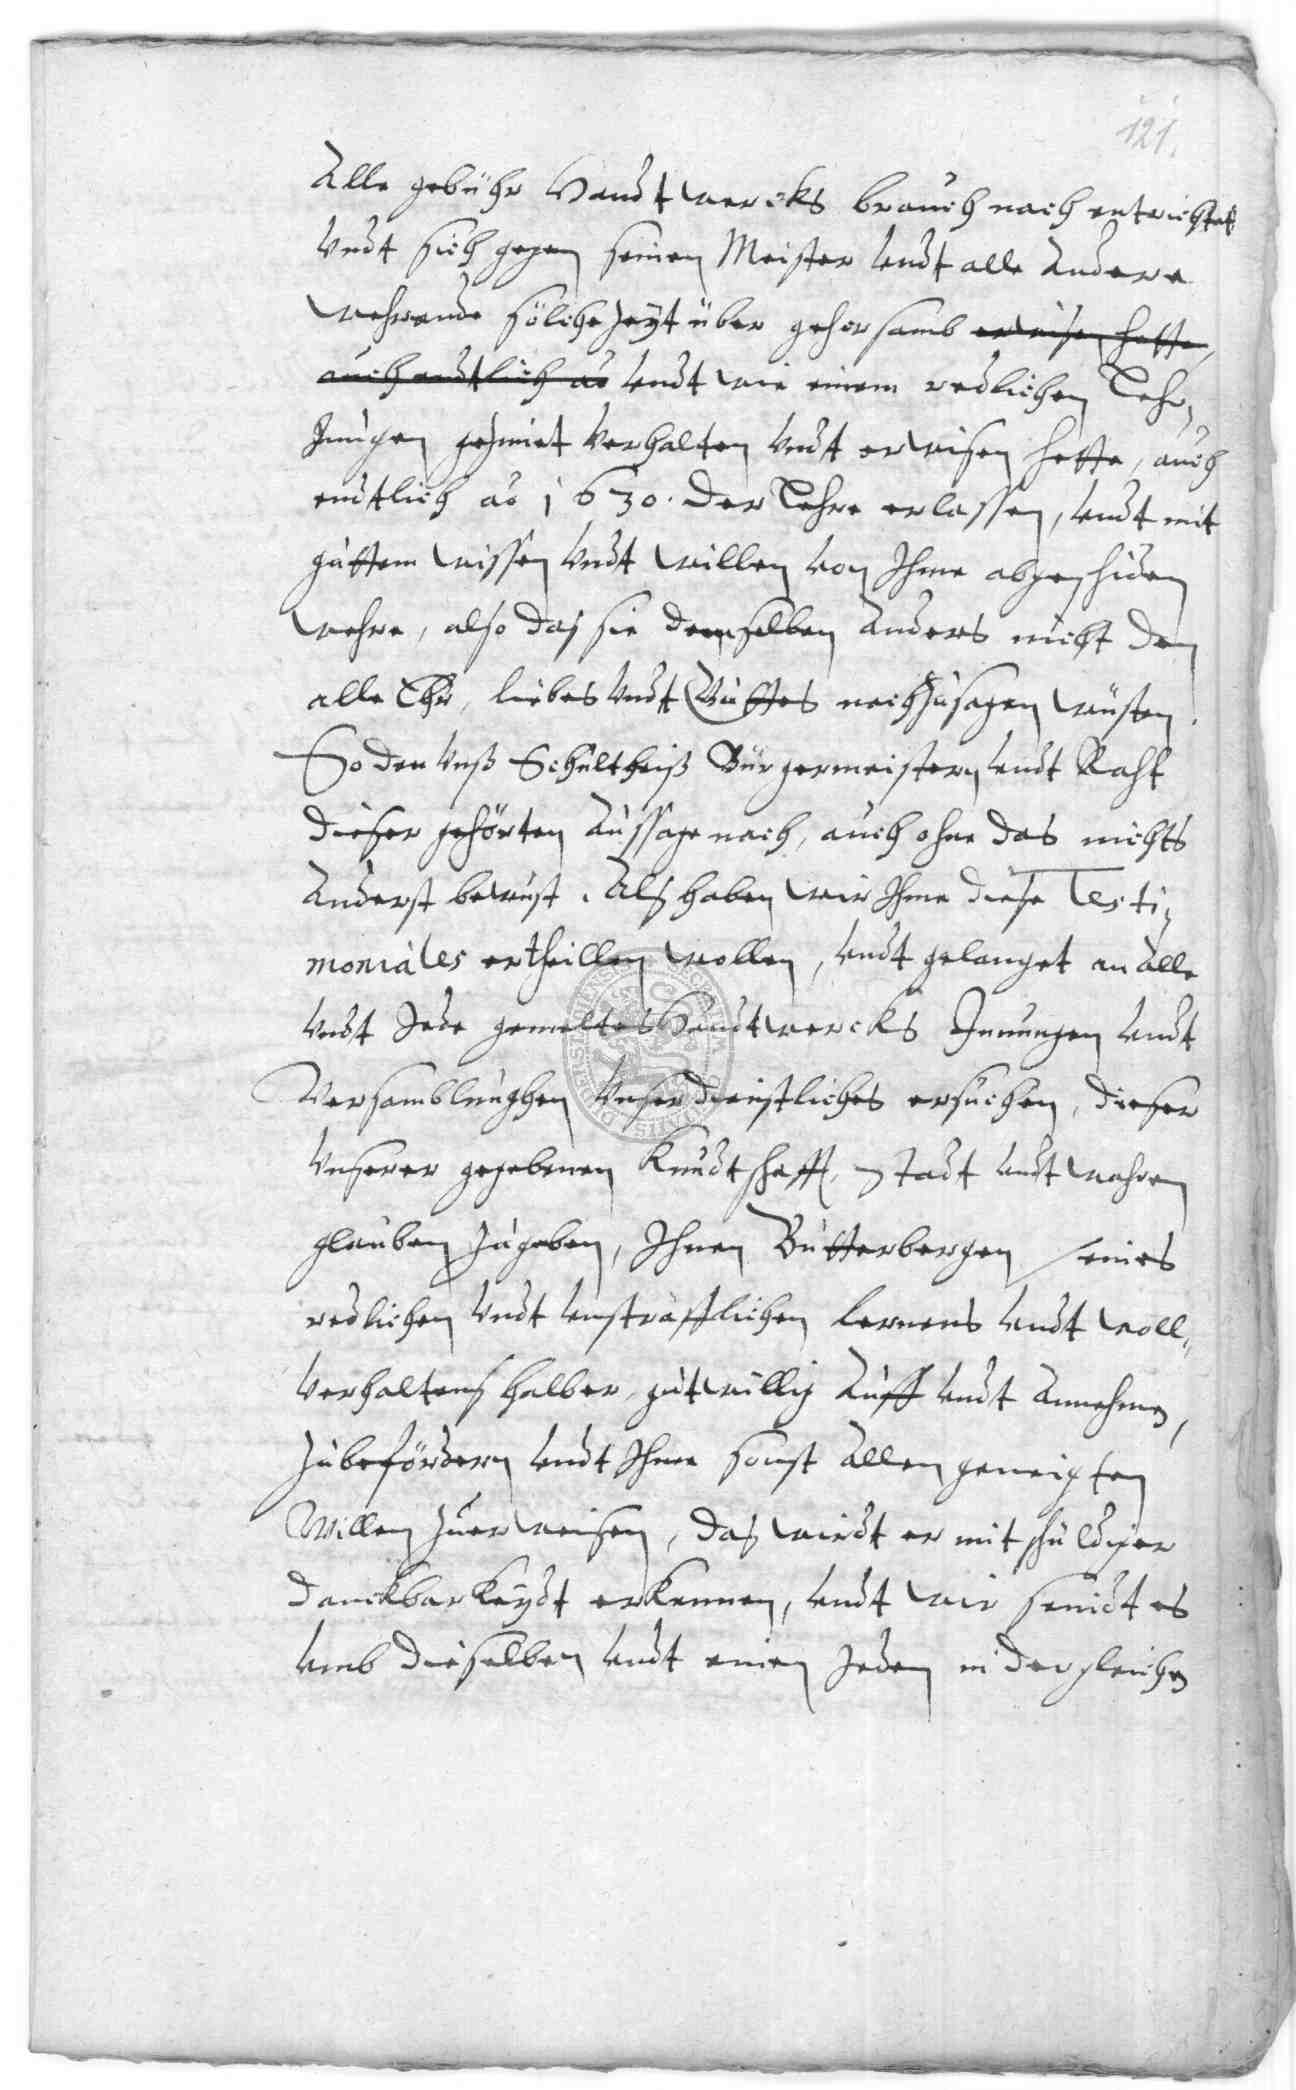 121.
Alle gebühr Handtwercks brauch nach entrichtet
Undt sich gegen seinen Meister undt alle Andere
wehrende sölche Zeyt über gehorsamb erwisen hette,
auch endtlich ao undt wie einem redlichen Lehr-
Jungen gezimet verhalten undt erwisen hette, auch
endtlich ao 1630. der Lehre erlassen, undt mit
guttem wissen undt willen von Ihme abgeschiden
wehre, also das sie demselben Anders nicht den
alle Ehr, liebes undt Guttes nachzusagen wüsten.
So den Unß Schultheiß Bürgermeistern undt Raht
dieser gehörten Aussage nach, auch ohne das nichts
Anderst bewust. Als haben wir Ihme diese Testi-
moniales ertheillen wollen, undt gelanget an Alle
undt Jede gemeltes Handtwercks Innungen undt
Versamblunghen Unser dienstliches ersuchen, dieser
Unserer gegebenen Kundtschafft, stadt undt wahren
glauben zugeben, Ihnen Butterbergen seines
redlichen undt unsträfflichen lernens undt woll-
verhaltens halber, gutwillig Auff undt Annehmen,
zubefördern undt Ihme sonst Allen geneigten
Willen zuerweisen, das wirdt er mit schuldiger
danckbarkeydt erkennen, undt wir seindt es
umb dieselben undt einen Jeden in dergleichen